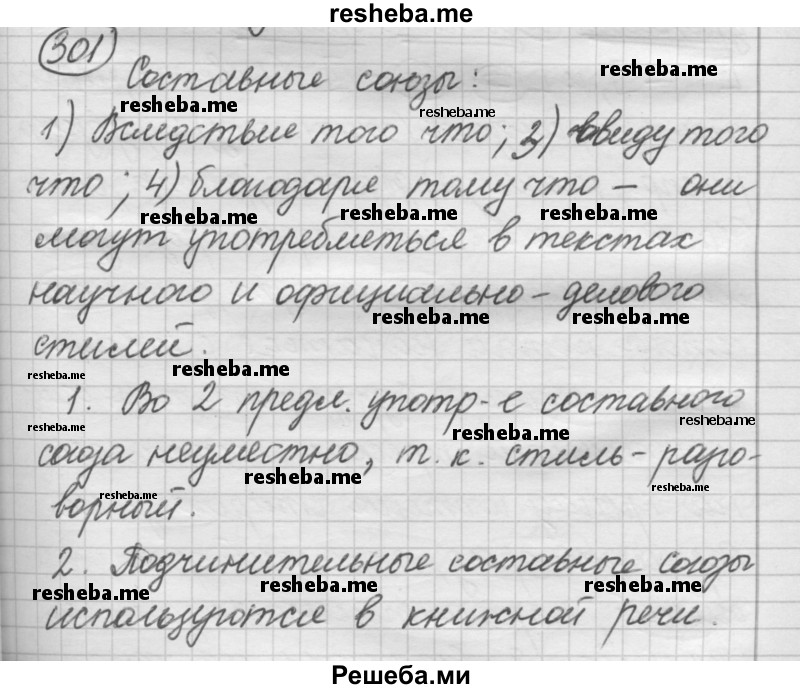 resheba.me
301
Составные союзы:
resheba.me
resheba.me
resheba.me
1) Вследствие того что; 3) ввиду того
что; 4) благодаря тому что – они
resheba.me
resheba.me
resheba.me
могут употребляться в текстах
научного и официально-делового
resheba.me
resheba.me
стилей.
resheba.me
resheba.me
1. Во 2 предл. употр-е составного
resheba.me
resheba.me
resheba.me
союза неуместно, т. к. стиль – разго-
resheba.me
resheba.me
resheba.me
ворный.
2. Подчинительные составные союзы
resheba.me
resheba.me
resheba.me
используются в книжной речи.
Решеба.ми